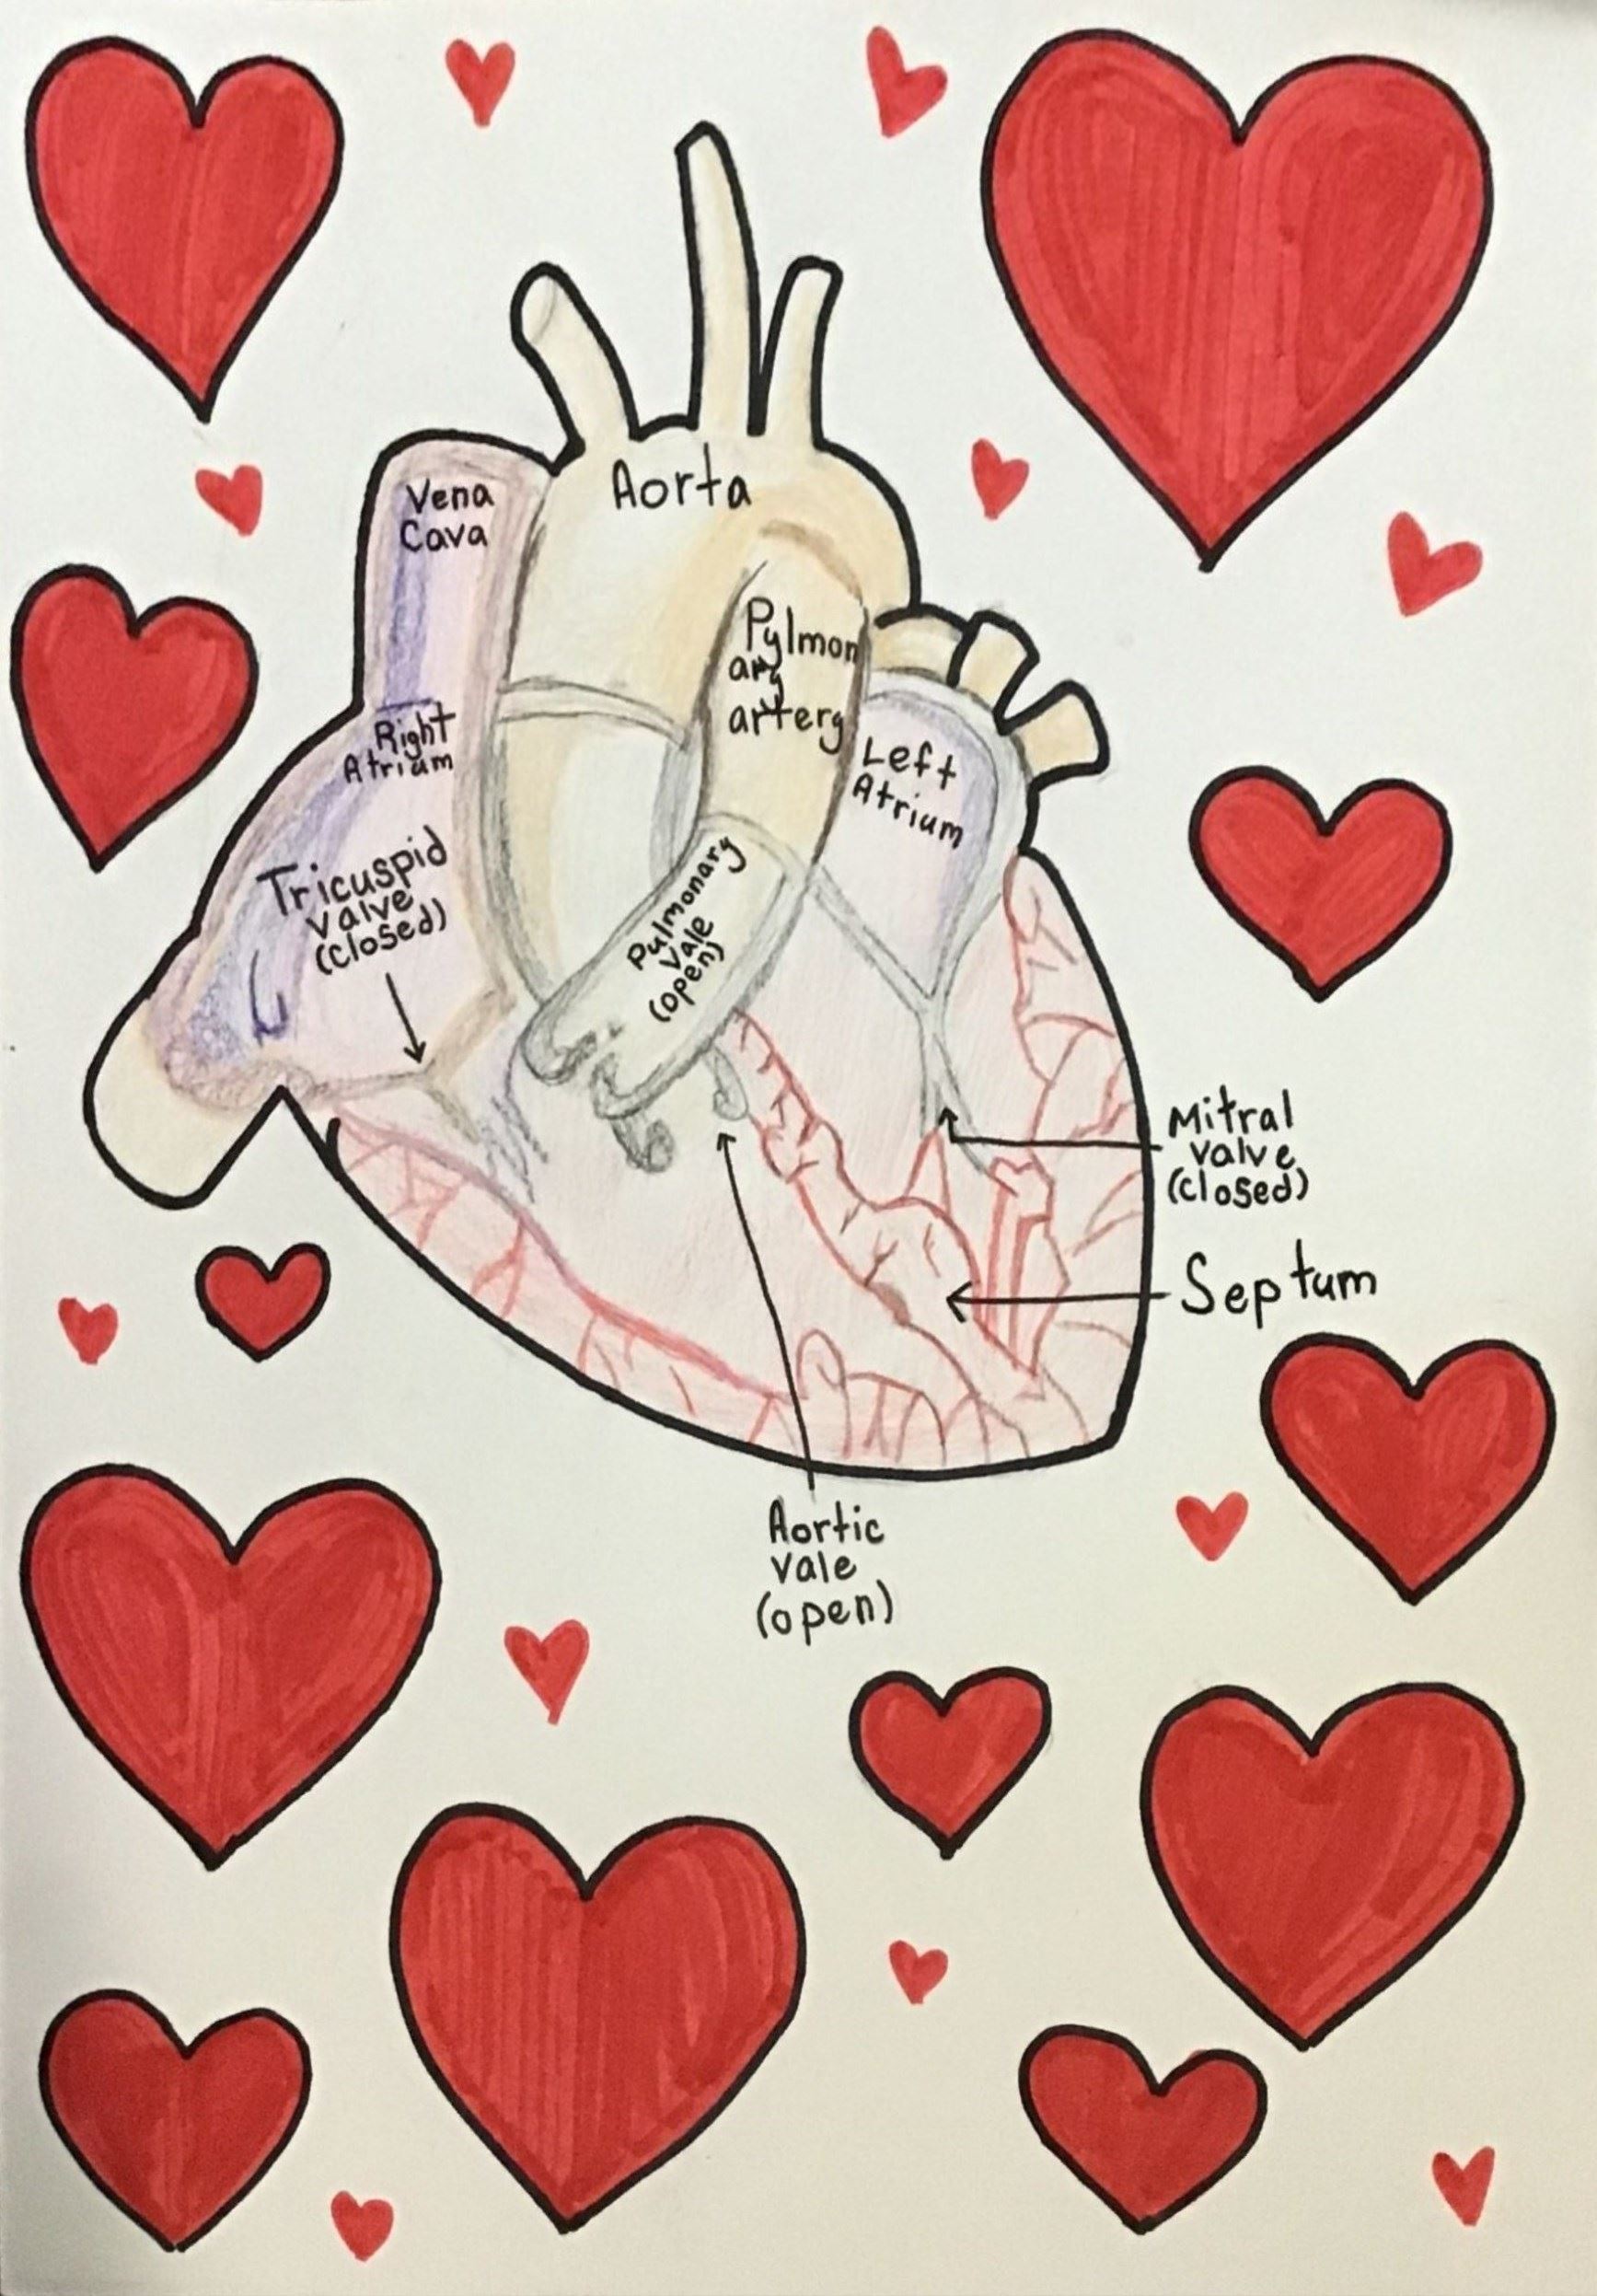 Aorta
Vena
Cava
Pylmon
ary
artery
Right
Atrium
Left
Atrium
Tricuspid
valve
(closed)
Pulmonary
Vale
(open)
Mitral
valve
(closed)
Septum
Aortic
vale
(open)